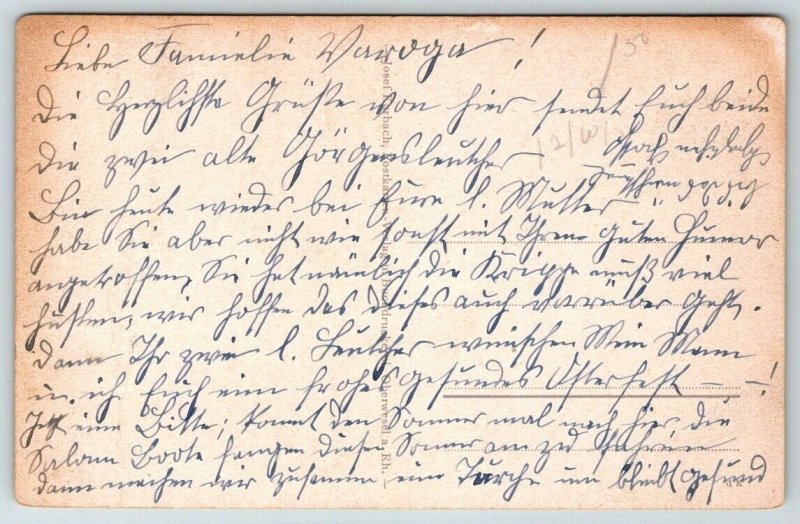 Liebe Familie Varoga!
Die Herzlichsten Grüße von hier sendet Euch beide
die zwei alte
Bin heute wieder bei Eure l. Mutter
habe Sie aber nicht wie sonst mit Ihren guten Humor
angetroffen, Sie hat nämlich die Krippe muß viel
husten, wir hoffen das dieses auch vorrüber geht.
Dann Ihr zwei l. Leutcher wünschen Mein Mann
u. ich Euch ein frohes gesundes Osterfest — — !
eine Bitte; kommt den Sommer mal nach hier, die
Boote fangen diesen Sommer an zu fahren
dann machen wir zusammen eine und bleibt gesund
Josef bach, Oberwesel a. Rh.